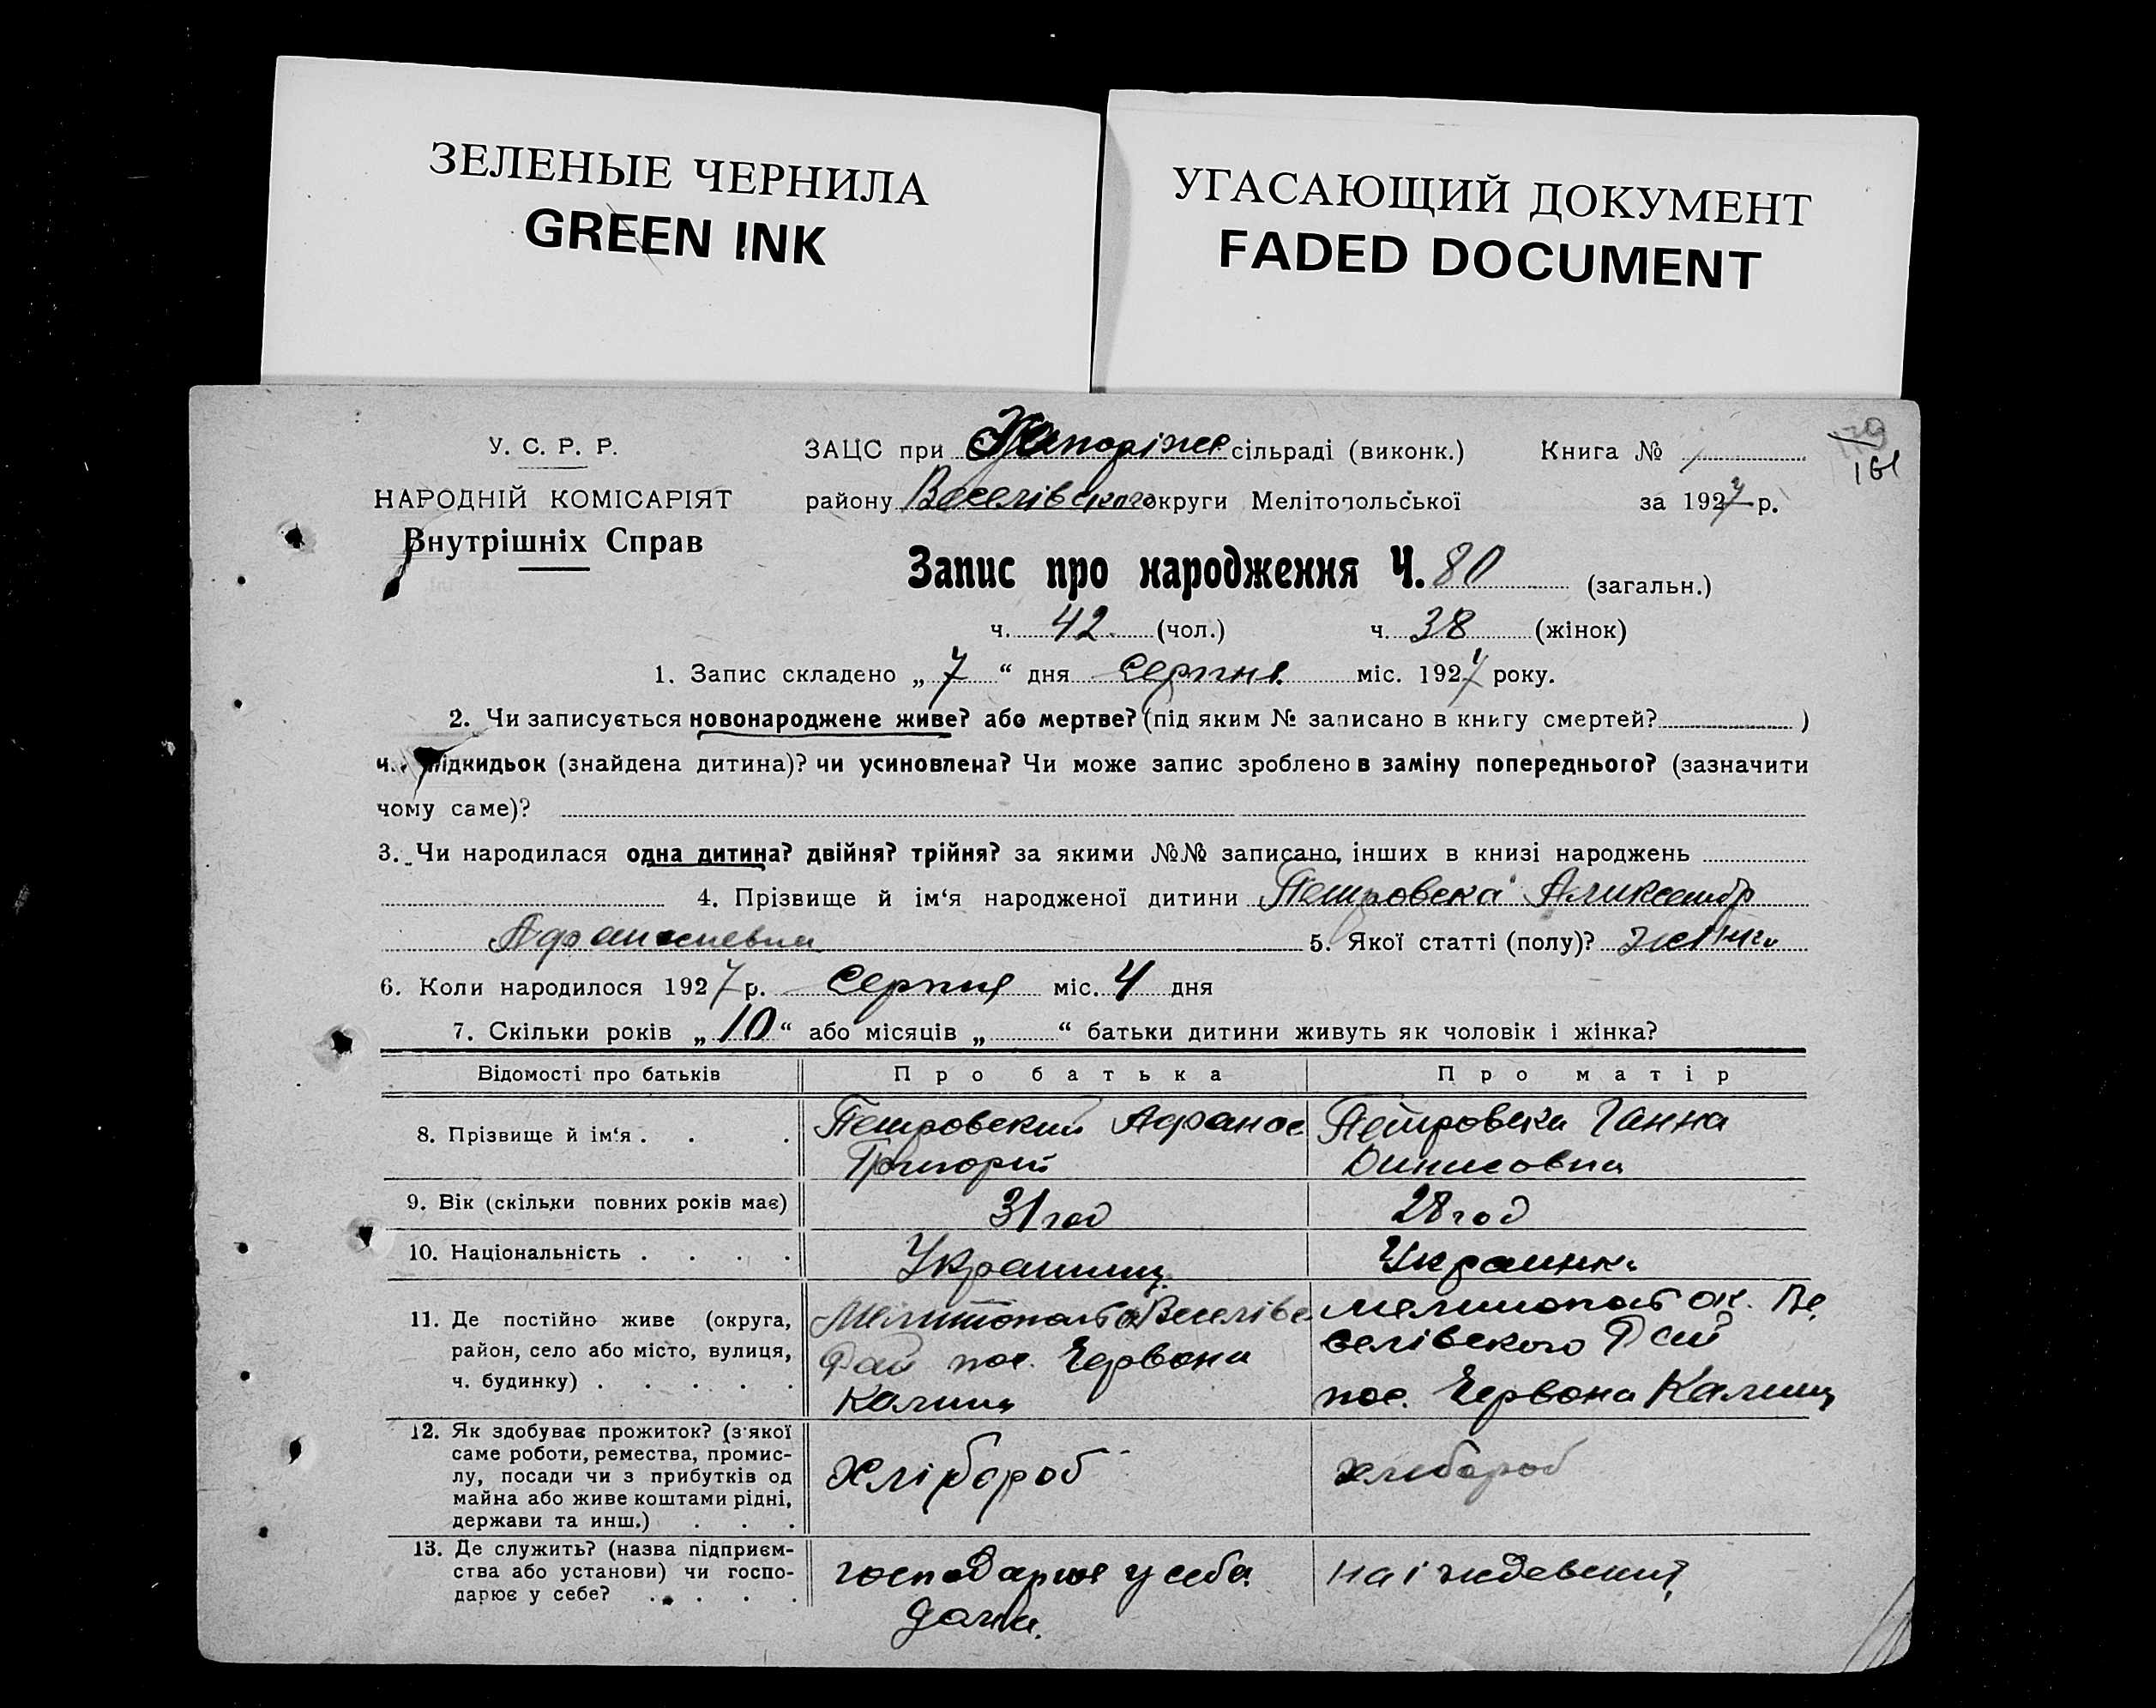 ЗЕЛЕНЫЕ ЧЕРНИЛА
GREEN INK
УГАСАЮЩИЙ ДОКУМЕНТ
FADED DOCUMENT
179
161
У. С. Р. Р.
НАРОДНІЙ КОМІСАРІЯТ
Внутрішніх Справ
ЗАЦС при сільраді (виконк.) Книга № 1
району Веселівского округи Мелітопольської за 1927 р.
Запис про народження Ч. 80 (загальн.)
ч. 42 (чол.) ч. 38 (жінок)
1. Запис складено „ 7 “ дня Серпня міс. 1927 року.
2. Чи записується новонароджене живе? або мертве? (під яким № записано в книгу смертей? )
підкидьок (знайдена дитина)? чи усиновлена? Чи може запис зроблено в заміну попереднього? (зазначити
чому саме)?
3. Чи народилася одна дитина? двійня? трійня? за якими №№ записано, інших в книзі народжень
4. Прізвище й ім‘я народженої дитини Петровска Аликсандр
Афанасиевна 5. Якої статті (полу)?
6. Коли народилося 1927 р. Серпня міс. 4 дня
7. Скільки років „ 10 “ або місяців „ “ батьки дитини живуть як чоловік і жінка?
Відомості про батьків Про батька Про матір
8. Прізвище й ім‘я . . . Петровский Афанас Петровска Ганна
Григорий Динисовна
9. Вік (скільки повних років має) 31 год 28 год
10. Національність . . . . Украинец Украинка
11. Де постійно живе (округа, Мелитопольс Веселівс Мелитопольс ок. Ве
район, село або місто, вулиця, Рай пос. Червона селівского Рай
ч. будинку) . . . . . Калина пос. Червона Калина
12. Як здобуває прожиток? (з‘якої
саме роботи, ремества, промис-
лу, посади чи з прибутків од Хлібороб хлибороб
майна або живе коштами рідні,
держави та инш.) . . .
13. Де служить? (назва підприєм-
ства або установи) чи госпо- господарює у себа на іждевении
дарює у себе? . . . . . дома.